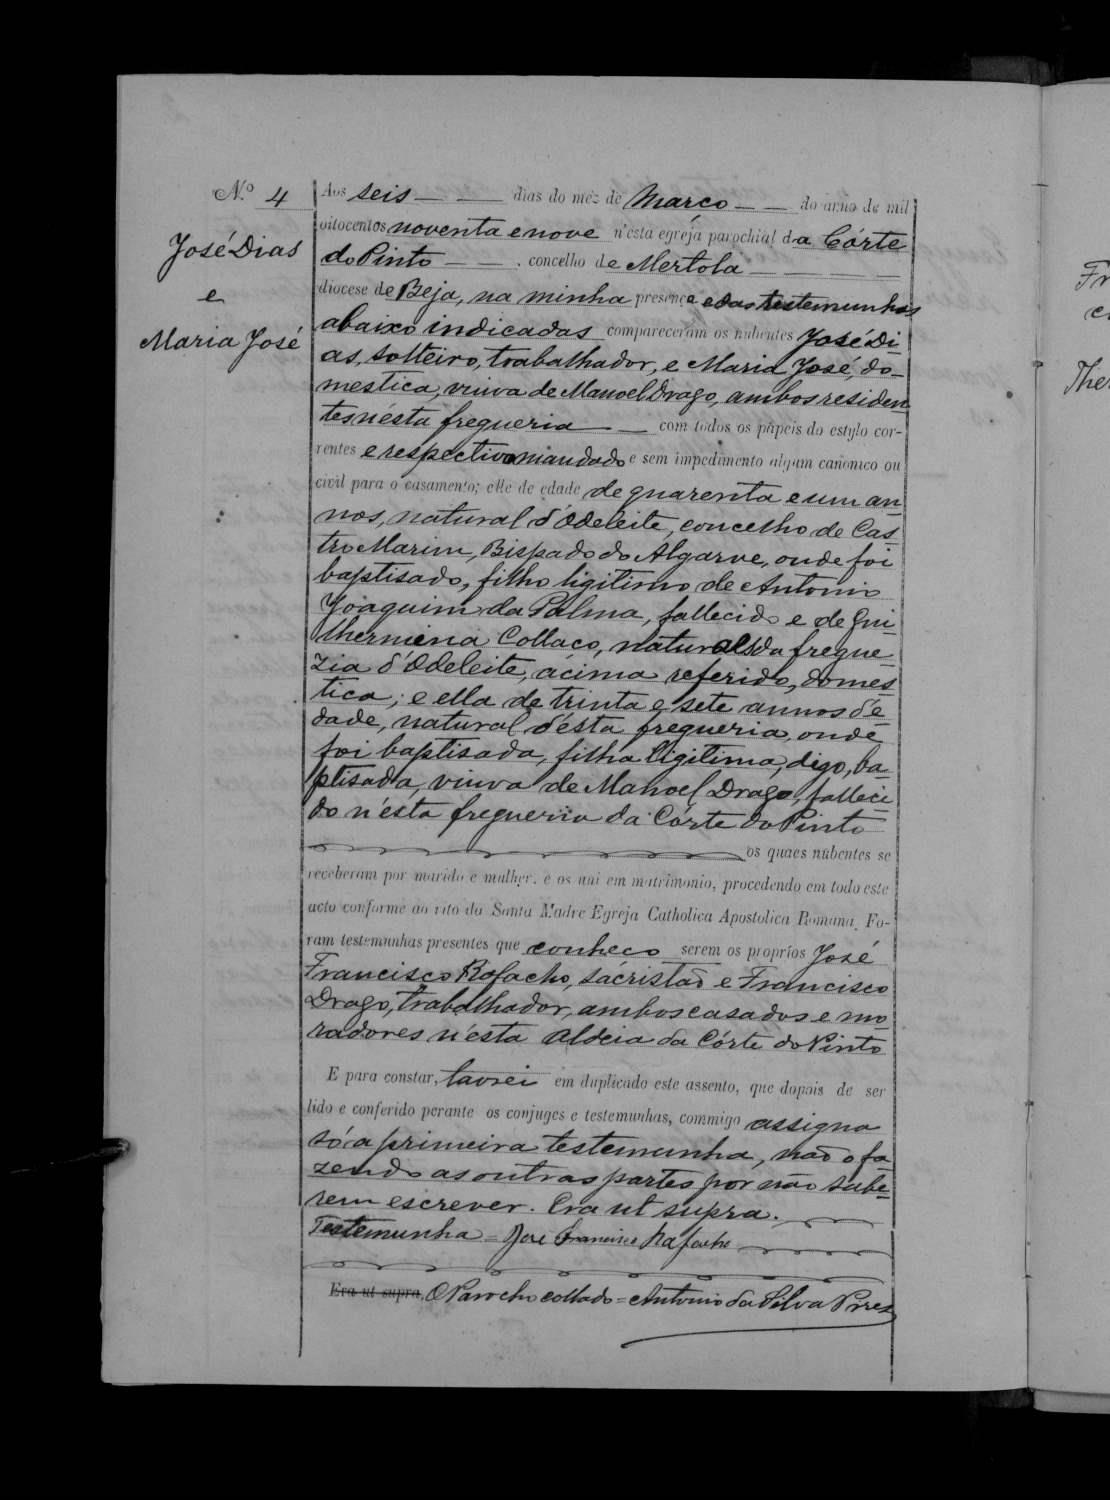 N.º 4
José Dias
e
Maria José
Aos seis dias do mez de Março do anno de mil
oitocentos noventa e nove n'esta egreja parochial da Córte
do Pinto concelho de Mertola
diocese de Beja, na minha presença e das testemunhas
abaixo indicadas compareceram os nubentes José Di-
as, solteiro, trabalhador, e Maria José, do-
mestica, viuva de Manoel Drago, ambos residen
tes n'ésta fregueria com todos os papeis do estylo cor-
rentes e respectivo mandado e sem impedimento algum canonico ou
civil para o casamento; elle de edade de quarenta e um an-
nos, natural d'Odeleite, concelho de Cas-
tro Marim, Bispado do Algarve, onde foi
baptisado, filho ligitimo de Antonio
Joaquim da Palma, fallecido e de Gui-
lhermina Collaco, naturaes da fregue-
zia d'Odeleite, ácima referido, domes-
tica; e ella de trinta e sete annos d'e-
dade, natural d'ésta fregueria, onde
foi baptisada, filha ligitima, digo, ba-
ptisada, viuva de Manoel Drago, falleci-
do n'ésta fregueria da Córte do Pinto
os quaes nubentes se
receberam por marido e mulher, e os uni em matrimonio, procedendo em todo este
acto conforme ao rito da Santa Madre Egreja Catholica Apostolica Romana. Fo-
ram testemunhas presentes que conheco serem os proprios José
Francisco Rafacho, sacristaõ e Francisco
Drago, trabalhador, ambos casados e mo-
radores n'ésta aldeia da Córte do Pinto
E para constar, lavrei em duplicado este assento, que depois de ser
lido e conferido perante os conjuges e testemunhas, commigo assigna
só a primeira testemunha, naõ o fa-
zendo as outras partes por não sabe-
rem escrever. Era ut supra.
Testemunha = José Francisco Rafacho
Era ut supra, O Parocho collado = Antonio da Silva Pires